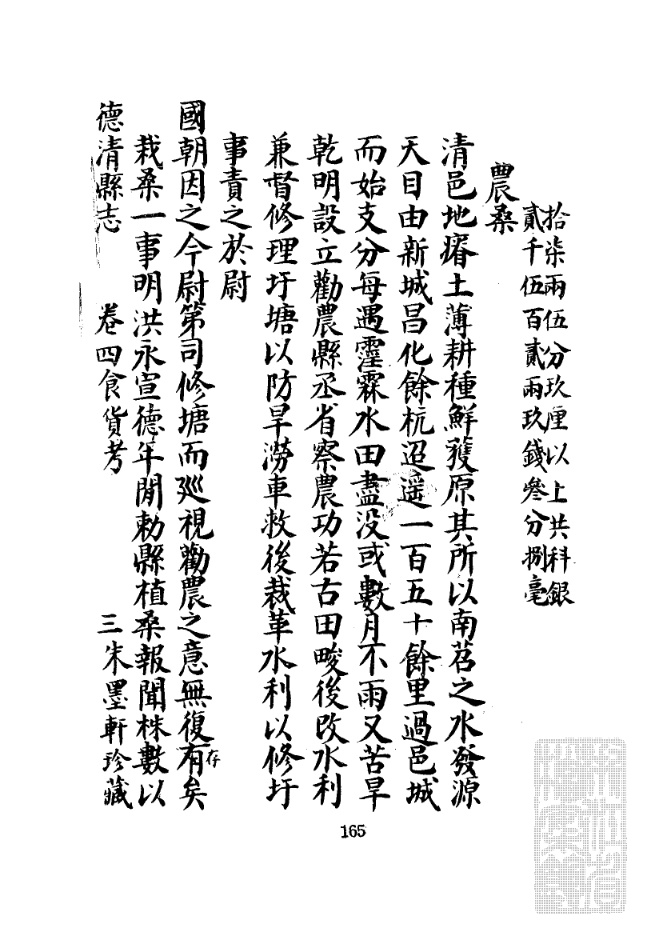 拾柒兩伍分玖厘以上共科銀
貳千伍百貳兩玖錢叄分捌毫
農桑
清邑地瘠土薄耕種鮮獲原其所以南苕之水發源
天目由新城昌化餘杭迢遥一百五十餘里過邑城
而始支分每遇霪霖水田盡没或數月不雨又苦旱
乾明設立勸農縣丞省察農功若古田畯後改水利
兼督修理圩塘以防旱澇車救後裁革水利以修圩
事責之於尉
國朝因之今尉第司修塘而廵視勸農之意無復有存矣
栽桑一事明洪永宣德年閒勅縣植桑報聞株數以
德清縣志 卷四食貨考 三朱墨軒珍藏
165